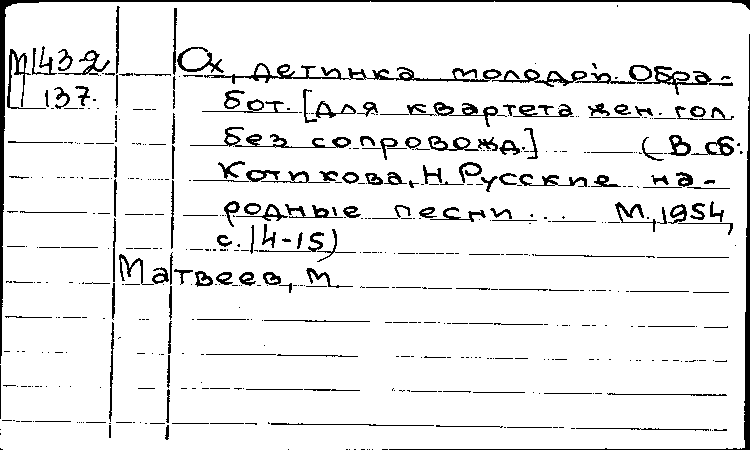 М 43-2
137.
Ох, детинка молодой. Обра-
бот. [для квартета жен. гол.
без сопровожд.] (В сб:
Котикова, Н. Русские на-
родные песни... М., 1954,
с. 14-15)
Матвеев, М.